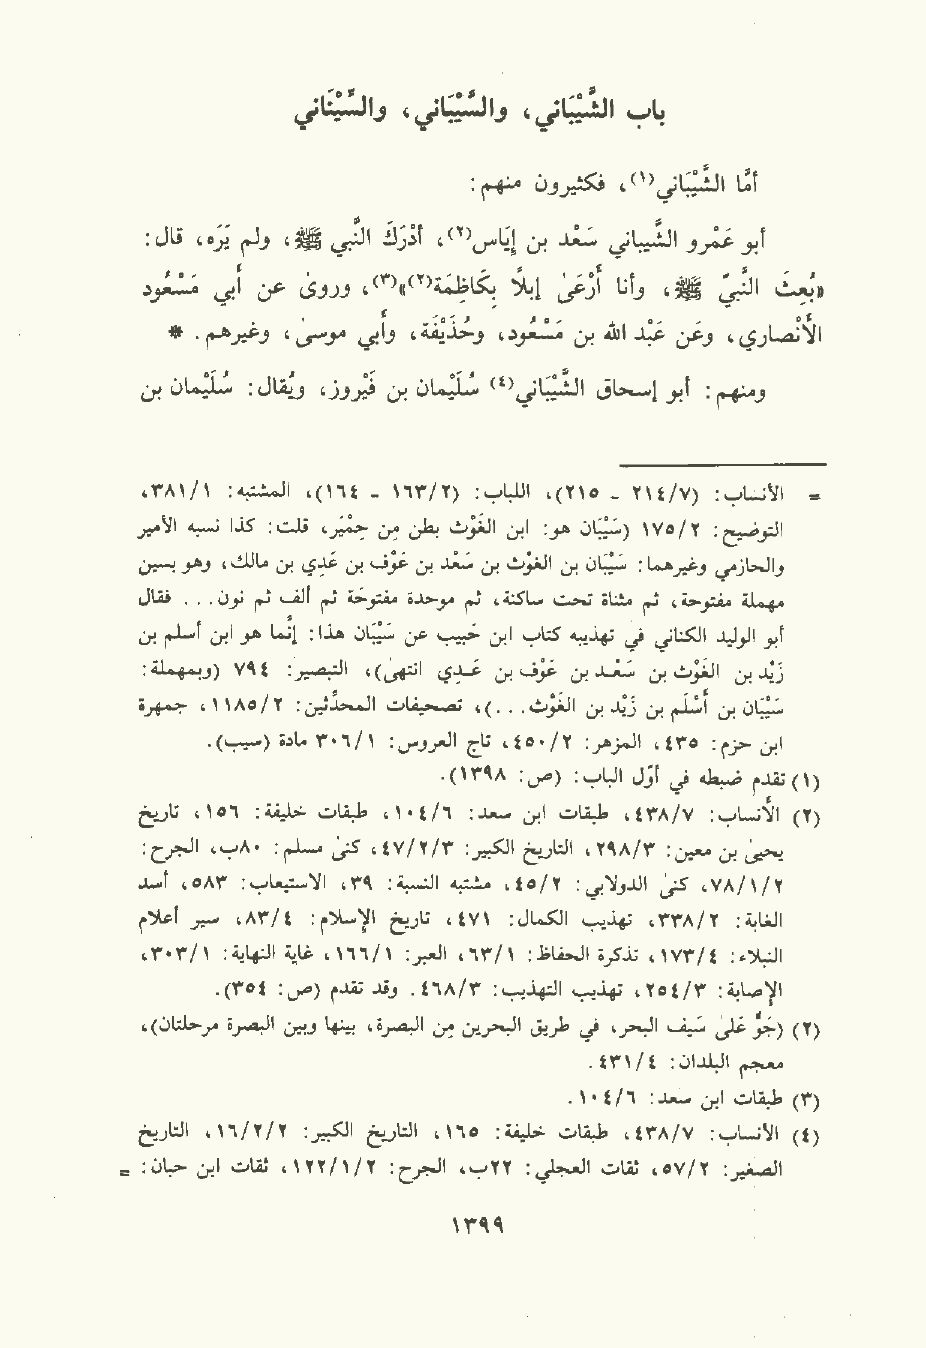 باب الشَّيْبَاني، والسَّيْبَاني، والسِّيْنَاني
أمَّا الشَّيْبَاني(١)، فكثيرون منهم:
أبو عَمْرو الشَّيباني سَعْد بن إيَاس(٢)، أدْرَكَ النَّبي ﷺ، ولم يَرَه، قال:
«بُعِثَ النَّبيّ ﷺ، وأنا أرْعَىٰ إبلاً بكَاظِمَة(٢)»(٣)، وروىٰ عن أبي مَسْعُود
الأنْصاري، وعن عَبْد الله بن مَسْعُود، وحُذَيْفَة، وأبي موسىٰ، وغيرهم. *
ومنهم: أبو إسحاق الشَّيْبَاني(٤) سُلَيْمان بن فَيْروز، ويُقال: سُلَيْمان بن
= الأنساب: (٧/ ٢١٤ - ٢١٥)، اللباب: (٢/ ١٦٣ - ١٦٤)، المشتبه: ١/ ٣٨١،
التوضيح: ٢/ ١٧٥ (سَيْبَان هو: ابن الغَوْث بطن مِن حِمْيَر، قلت: كذا نسبه الأمير
والحازمي وغيرهما: سَيْبَان بن الغَوْث بن سَعْد بن عَوْف بن عَدِي بن مالك، وهو بسين
مهملة مفتوحة، ثم مثناة تحت ساكنة، ثم موحدة مفتوحة ثم ألف ثم نون... فقال
أبو الوليد الكناني في تهذيبه كتاب ابن حَبيب عن سَيْبَان هذا: إنَّما هو ابن أسلم بن
زَيْد بن الغَوْث بن سَعْد بن عَوْف بن عَدِي انتهىٰ)، التبصير: ٧٩٤ (وبمهملة:
سَيْبَان بن أَسْلَم بن زَيْد بن الغَوْث...)، تصحيفات المحدِّثين: ٢/ ١١٨٥، جمهرة
ابن حزم: ٤٣٥، المزهر: ٢/ ٤٥٠، تاج العروس: ١/ ٣٠٦ مادة (سيب).
(١) تقدم ضبطه في أوّل الباب: (ص: ١٣٩٨).
(٢) الأنساب: ٧/ ٤٣٨، طبقات ابن سعد: ٦/ ١٠٤، طبقات خليفة: ١٥٦، تاريخ
يحيىٰ بن معين: ٣/ ٢٩٨، التاريخ الكبير: ٣/ ٢/ ٤٧، كنىٰ مسلم: ٨٠ب، الجرح:
٢/ ١/ ٧٨، كنىٰ الدولابي: ٢/ ٤٥، مشتبه النسبة: ٣٩، الاستيعاب: ٥٨٣، أسد
الغابة: ٢/ ٣٣٨، تهذيب الكمال: ٤٧١، تاريخ الإسلام: ٤/ ٨٣، سير أعلام
النبلاء: ٤/ ١٧٣، تذكرة الحفاظ: ١/ ٦٣، العبر: ١/ ١٦٦، غاية النهاية: ١/ ٣٠٣،
الإصابة: ٣/ ٢٥٤، تهذيب التهذيب: ٣/ ٤٦٨. وقد تقدم (ص: ٣٥٤).
(٢) (جَوّ علىٰ سَيف البحر، في طريق البحرين مِن البصرة، بينها وبين البصرة مرحلتان)،
معجم البلدان: ٤/ ٤٣١.
(٣) طبقات ابن سعد: ٦/ ١٠٤.
(٤) الأنساب: ٧/ ٤٣٨، طبقات خليفة: ١٦٥، التاريخ الكبير: ٢/ ٢/ ١٦، التاريخ
الصغير: ٢/ ٥٧، ثقات العجلي: ٢٢ب، الجرح: ٢/ ١/ ١٢٢، ثقات ابن حبان: =
١٣٩٩